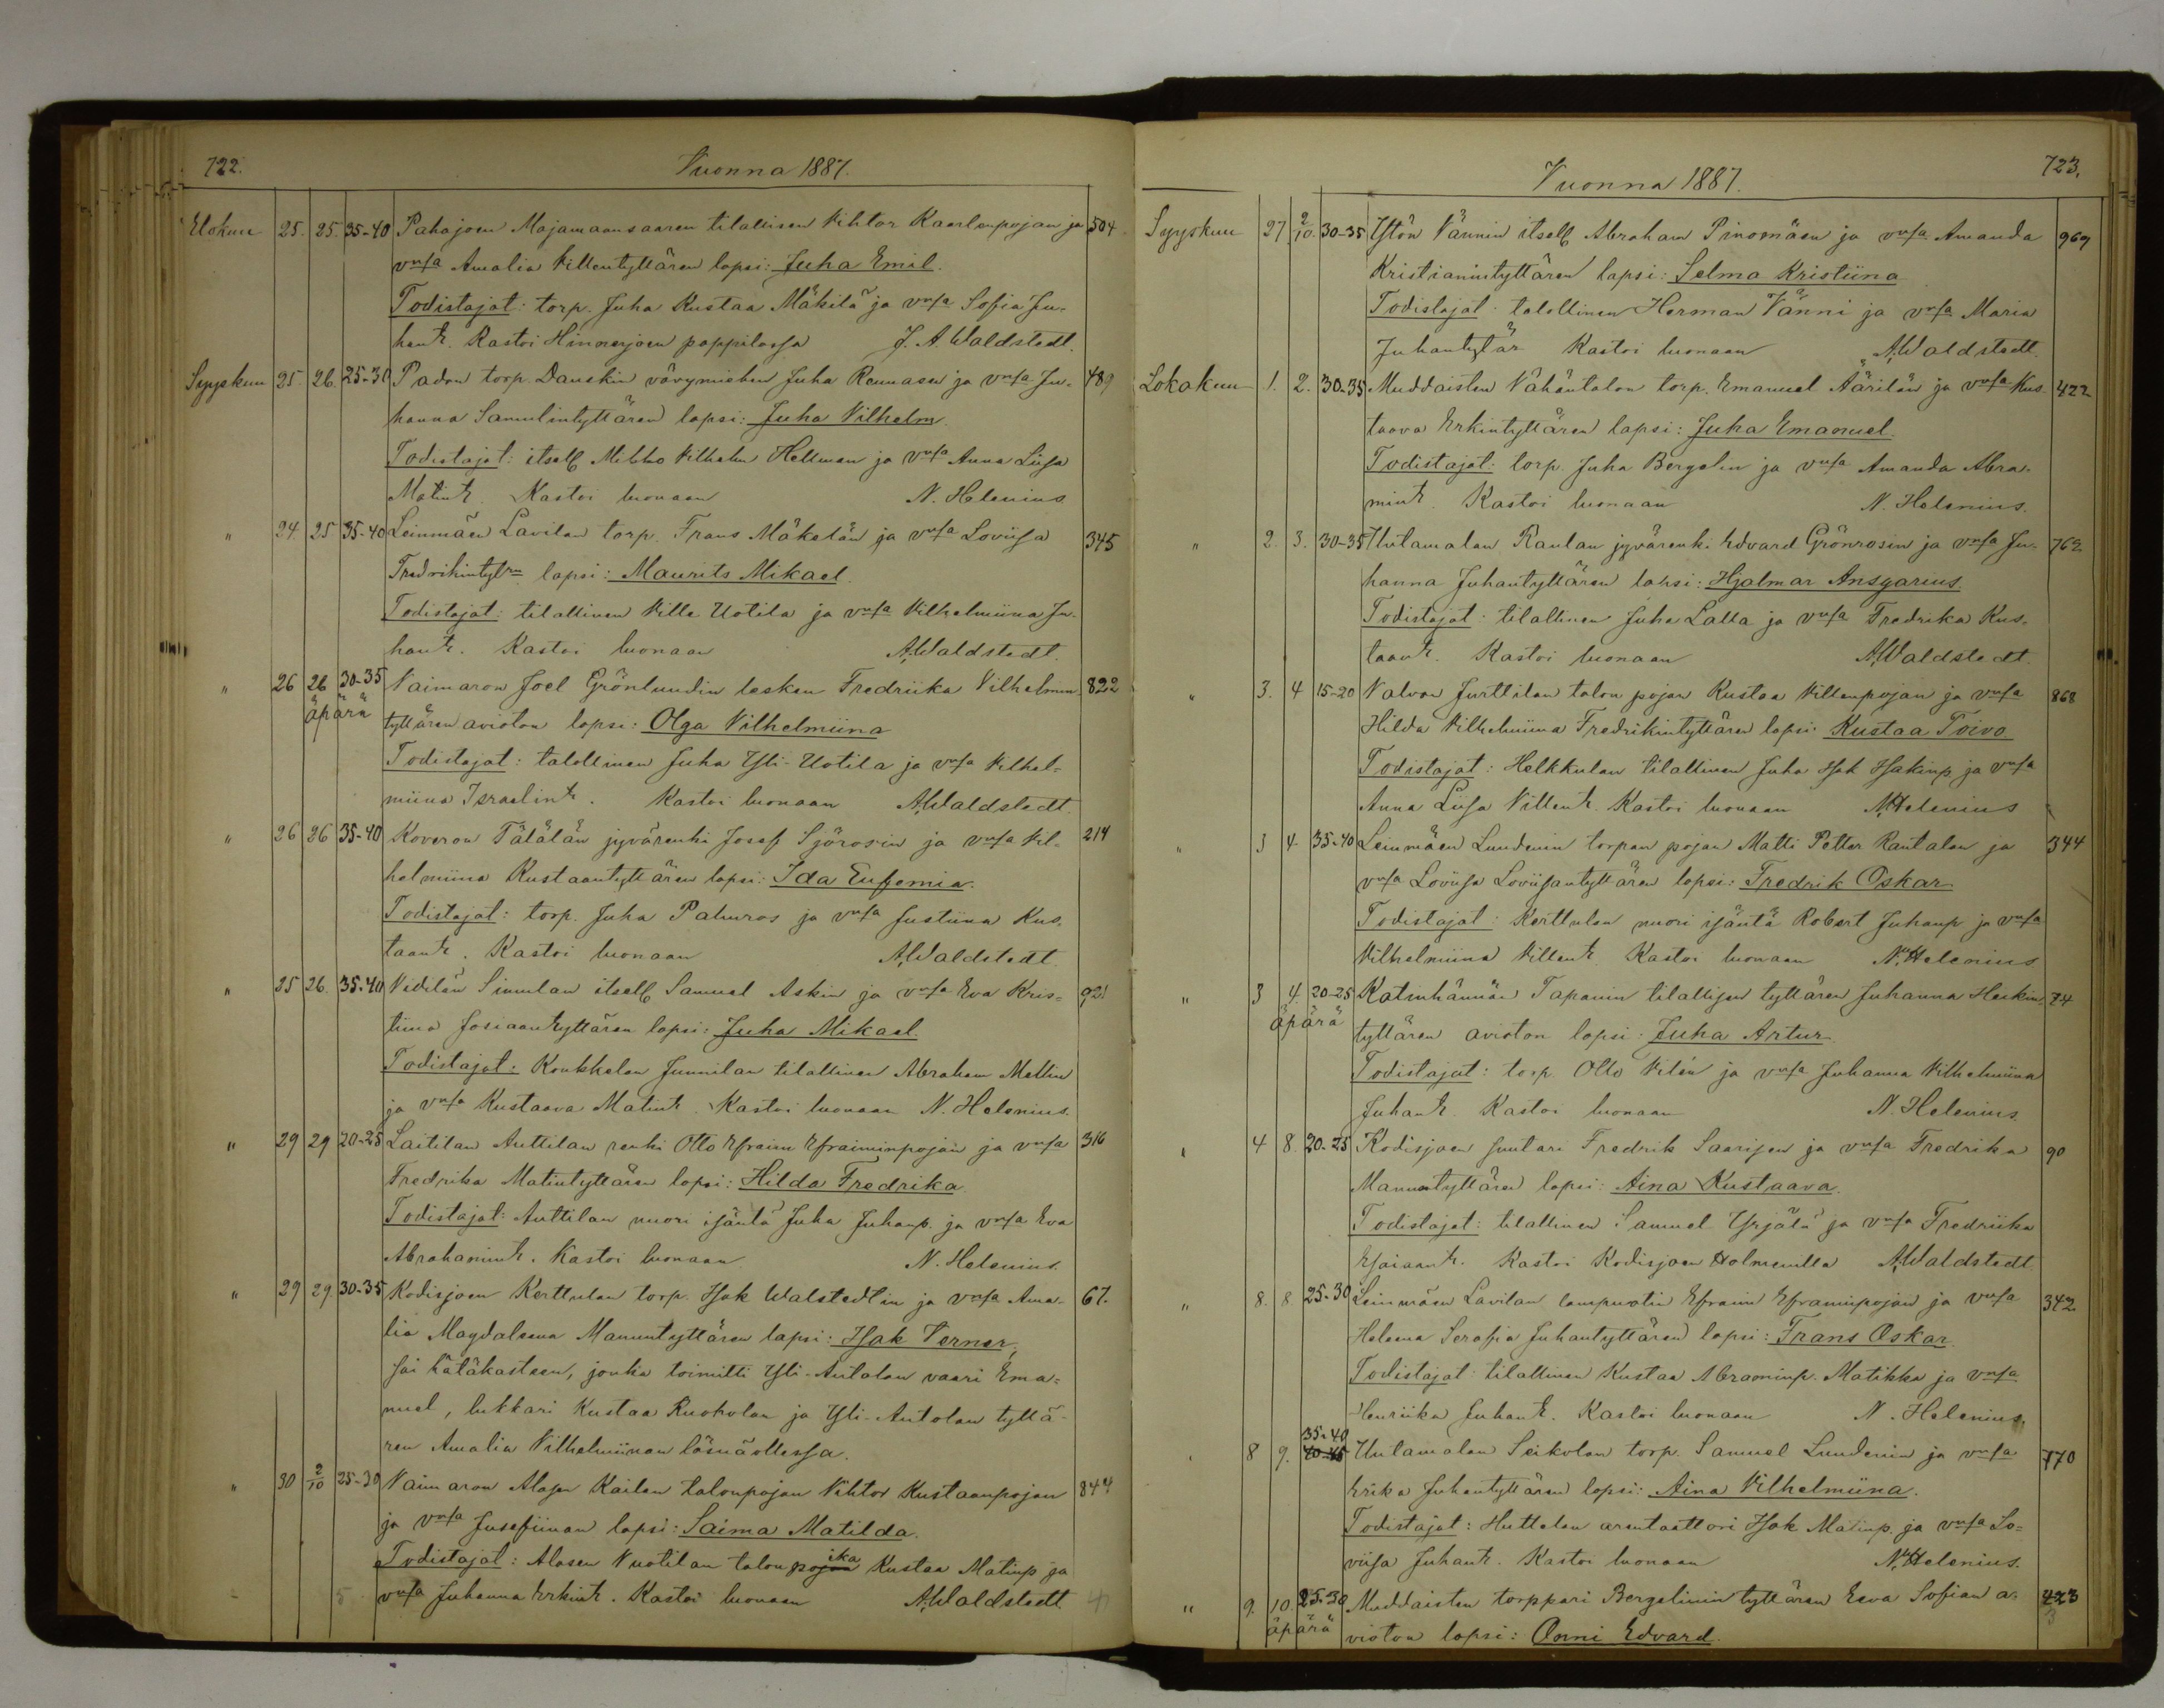 722.
Vuonna 1887.
Elokuu 25. 25. 35-40 Pahajoen Majamaansaaren tilallisen Vihtor Kaarlenpojan ja 504
vmsa Amalia Villentyttären lapsi: Juha Emil.
Todistajat: torp. Juha Kustaa Mäkilä ja vmsa Sofia Ju-
hant. Kastoi Hinnerjoen pappilassa J. A. Waldstedt.
Syyskuu 25. 26. 25-30 Padon torp. Danskin vävymiehen Juha Rennasen ja vmsa Ju- 489
hanna Samulintyttären lapsi: Juha Vilhelm.
Todistajat: itsell. Mikko Vilhelm Hellman ja vmsa Anna Liisa
Matint. Kastoi luonaan N. Helenius
" 24. 25 35-40 Leinmäen Lavilan torp. Frans Mäkelän ja vmsa Loviisa 345
Fredrikintytrn lapsi: Maurits Mikael.
Todistajat: tilallinen Ville Uotila ja vmsa Vilhelmiina Ju-
hant. Kastoi luonaan A. Waldstedt.
" 26 26 30-35 Vaimaron Joel Grönlundin lesken Fredriika Vilhelmin 822
äpärä tyttären avioton lapsi: Olga Vilhelmiina
Todistajat: talollinen Juha Yli-Uotila ja vmsa Vilhel-
miina Israelint. Kastoi luonaan A. Waldstedt
" 26 26 35-40 Koveron Tälälän jyvärenki Josef Sjörosin ja vmsa Vil- 214
helmiina Kustaantyttären lapsi: Ida Eufemia.
Todistajat: torp. Juha Palmros ja vmsa Justiina Kus-
taant. Kastoi luonaan A. Waldstedt
" 25 26. 35-40 Vidilän Simulan itsell. Samuel Askin ja vmsa Eva Kris- 921
tiina Josiaantyttären lapsi: Juha Mikael.
Todistajat: Koukkelan Junnilan tilallinen Abraham Mellin
ja vmsa Kustaava Matint. Kastoi luonaan N. Helenius.
" 29 29 20-25 Laitilan Anttilan renki Otto Efraim Efraiminpojan ja vmsa 316
Fredrika Matintyttären lapsi: Hilda Fredrika
Todistajat: Anttilan nuori isäntä Juha Juhanp. ja vmsa Eva
Abrahamint. Kastoi luonaan N. Helenius.
" 29 29 30-35 Kodisjoen Kerttulan torp. Isak Walstedtin ja vmsa Ama- 67.
lia Magdaleena Manuntyttären lapsi: Isak Verner,
sai hätäkasteen, jonka toimitti Yli-Antolan vaari Ema-
nuel, lukkari Kustaa Ruohola ja Yli-Antolan tyttä-
ren Amalia Vilhelmiinan läsnäollessa.
" 30 2/10 25-30 Vaimaron Alasen Kailan talonpojan Vihtor Kustaanpojan 844
ja vmsa Josefiinan lapsi: Saima Matilda.
Todistajat: Alasen Vuotilan talon poika Kustaa Matinp. ja
vmsa Juhanna Erkint. Kastoi luonaan A. Waldstedt
723.
Vuonna 1887.
Syyskuu 27 2/10 30-35 Ystön Vännin itsell. Abraham Pinomäen ja vmsa Amanda 969
Kristianintyttären lapsi: Selma Kristiina
Todistajat: talollinen Herman Vänni ja vmsa Maria
Juhantytär Kastoi luonaan A. Waldstedt.
Lokakuu 1. 2. 30-35 Muddaisten Vähäntalon torp. Emanuel Äärilän ja vmsa Kus- 422
taava Erkintyttären lapsi: Juha Emanuel.
Todistajat: torp. Juha Bergelin ja vmsa Amanda Abra-
mint. Kastoi luonaan N. Helenius.
" 2. 3. 30-35 Untamalan Raulan jyvärenki Edvard Grönrosin ja vmsa Ju- 762
hanna Juhantyttären lapsi: Hjalmar Ansgarius.
Todistajat: tilallinen Juha Lalla ja vmsa Fredrika Kus-
taant. Kastoi luonaan A. Waldstedt.
" 3. 4 15-20 Valvon Jurttilan talon pojan Kustaa Villenpojan ja vmsa 868
Hilda Vilhelmiina Fredrikintyttären lapsi: Kustaa Toivo
Todistajat: Helkkulan tilallinen Juha Isak Isakinp. ja vmsa
Anna Liisa Villent. Kastoi luonaan N. Helenius
" 3 4. 35-40 Leinmäen Lundenin torpan pojan Matti Petter Rantalan ja 344
vmsa Loviisa Loviisantyttären lapsi: Fredrik Oskar.
Todistajat: Kerttulan nuori isäntä Robert Juhanp. ja vmsa
Vilhelmiina Villent. Kastoi luonaan N. Helenius
" 3 4. 20-25 Katinhännän Tapanin tilallisen tyttären Juhanna Heikin- 74
äpärä tyttären avioton lapsi: Juha Artur.
Todistajat: torp. Otto Vilén ja vmsa Juhanna Vilhelmiina
Juhant. Kastoi luonaan N. Helenius.
" 4 8. 20-25 Kodisjoen suutari Fredrik Saarisen ja vmsa Fredrika 90
Manuntyttären lapsi: Aina Kustaava.
Todistajat: tilallinen Samuel Yrjälä ja vmsa Fredriika
Esaiaant. Kastoi Kodisjoen Holmenilla A. Waldstedt.
" 8. 8. 25-30 Leinmäen Lavilan lampuotin Efraim Efraiminpojan ja vmsa 342
Helena Serafia Juhantyttären lapsi: Frans Oskar
Todistajat: tilallinen Kustaa Abraminp. Matikka ja vmsa
Henriika Juhant. Kastoi luonaan N. Helenius,
35-40
8 9. 40-45 Untamalan Seikolan torp. Samuel Lundenin ja vmsa 770
Erika Juhantyttären lapsi: Aina Vilhelmiina.
Todistajat: Huttalan arentaattori Isak Matinp. ja vmsa Lo-
viisa Juhant. Kastoi luonaan N. Helenius.
" 9. 10. 25-30 Muddaisten torppari Bergelinin tyttären Eeva Sofian a- 423
äpärä vioton lapsi: Onni Edvard. 3